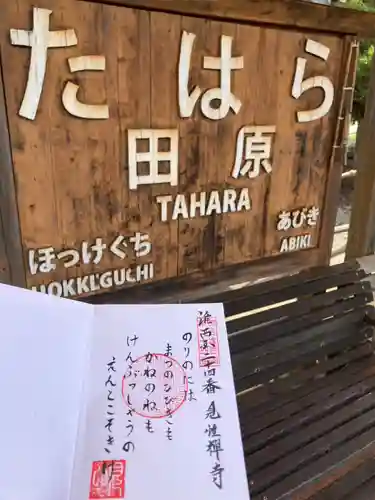 たはら
田原
TAHARA
ほっけぐち
HOKKE'GUCHI
あびき
ABIKI
播西第二十四番 見性禅寺
のりのには
まつのひびきも
かねのねも
けんぶつしやうの
えんとこそきけ